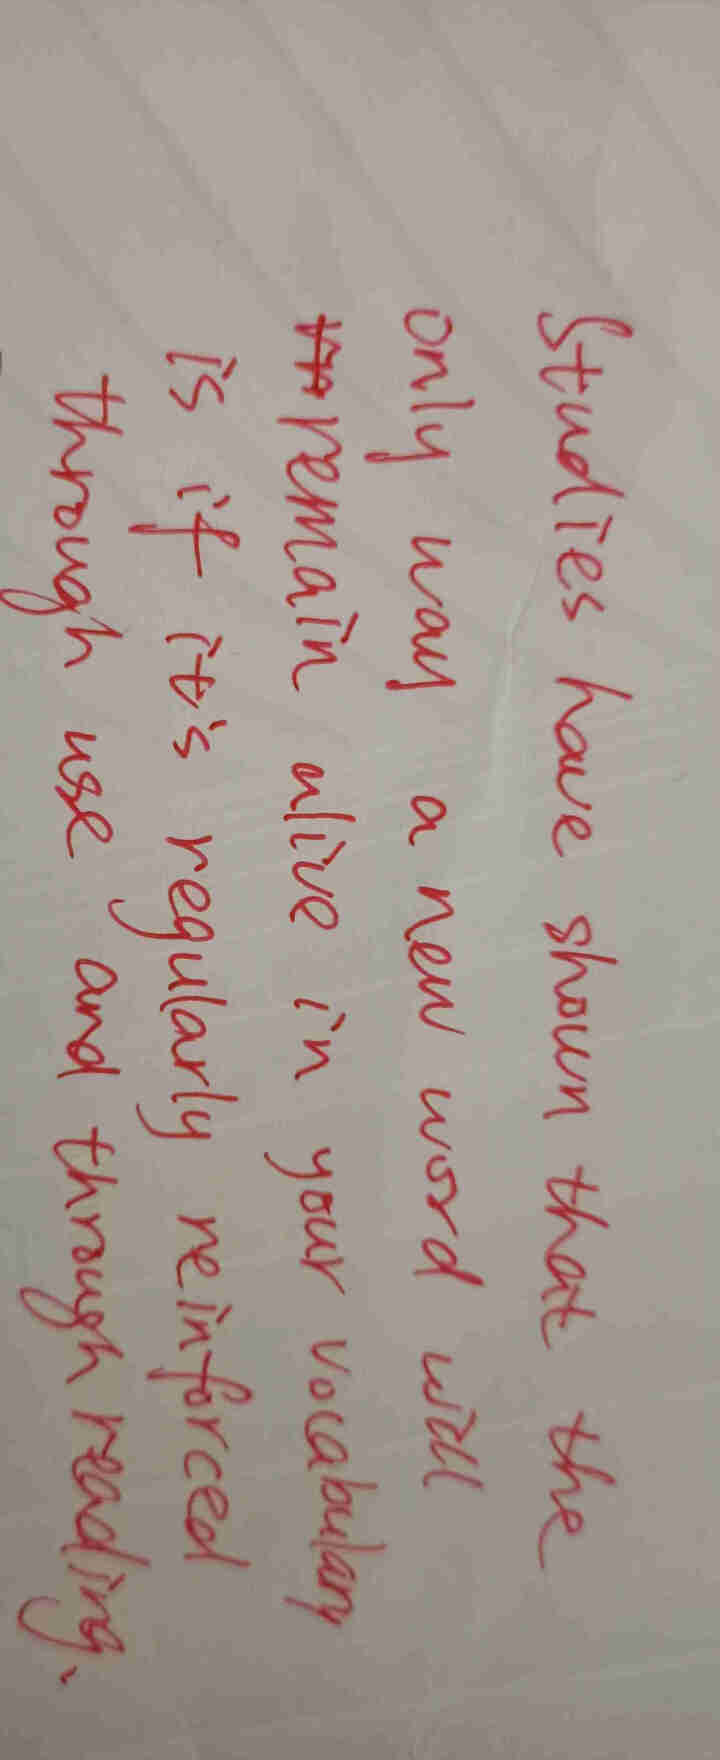 Studies have shown that the
only way a new word will
remain alive in your vocabulary
is if it's regularly reinforced
through use and through reading.